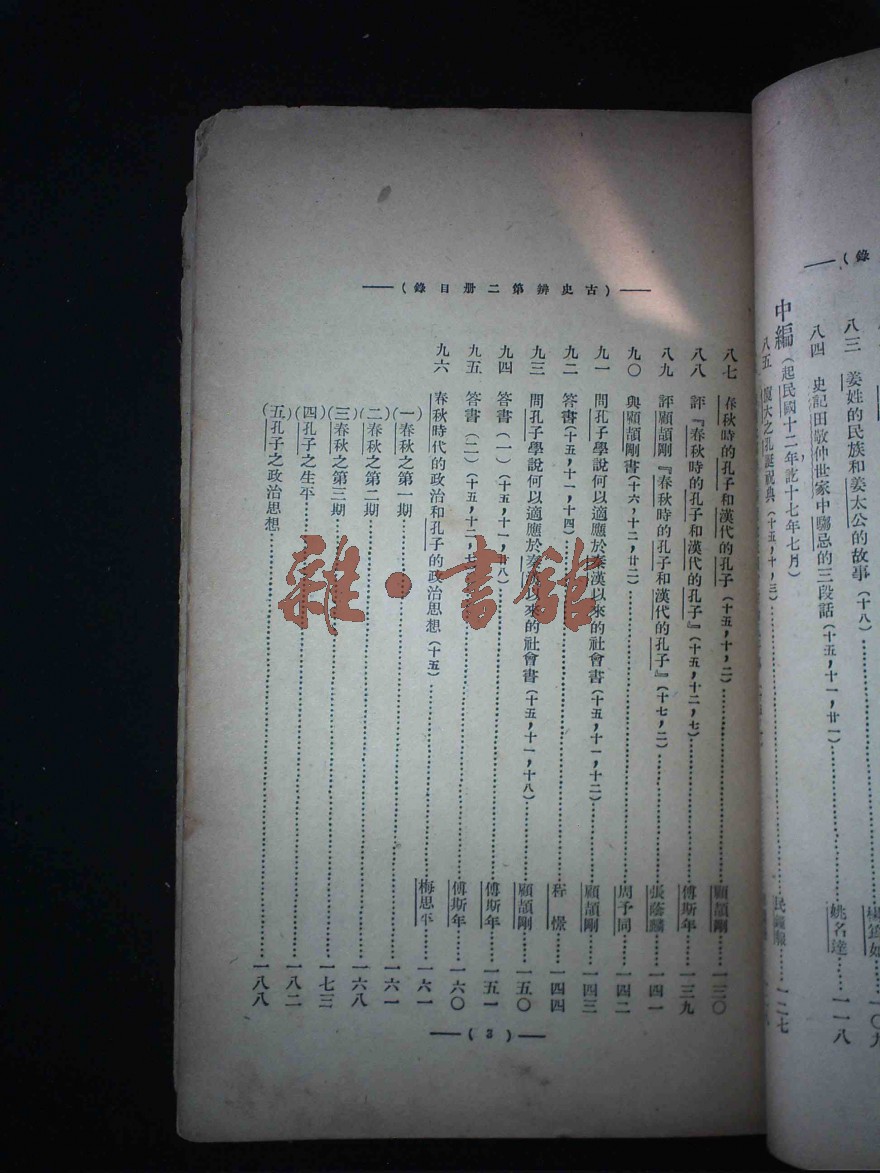 八三　姜姓的民族和姜太公的故事（十八）……一〇九
八四　史記田敬仲世家中騶忌的三段話（十五，十一，廿一）……姚名達……一一八
中編（起民國十二年訖十七年七月）
八五　廈大之孔誕祝典（十五，十，三）……民鐘報……一二七
（古史辨第二册目錄）
八七　春秋時的孔子和漢代的孔子（十五，十，二）……顧頡剛……一三〇
八八　評『春秋時的孔子和漢代的孔子』（十五，十二，七）……傅斯年……一三九
八九　評顧頡剛『春秋時的孔子和漢代的孔子』（十七，二）……張蔭麟……一四一
九〇　與顧頡剛書（十六，十二，廿二）……周予同……一四二
九一　問孔子學說何以適應於秦漢以來的社會書（十五，十一，十二）……顧頡剛……一四三
九二　答書（十五，十一，十四）……程憬……一四四
九三　問孔子學說何以適應於秦漢以來的社會書（十五，十一，十八）……顧頡剛……一五〇
九四　答書（一）（十五，十一，廿八）……傅斯年……一五一
九五　答書（二）（十五，十二，七）……傅斯年……一六〇
九六　春秋時代的政治和孔子的政治思想（十五）……梅思平……一六一
（一）春秋之第一期……一六一
（二）春秋之第二期……一六八
（三）春秋之第三期……一七三
（四）孔子之生平……一八二
（五）孔子之政治思想……一八八
（3）
雜·書館